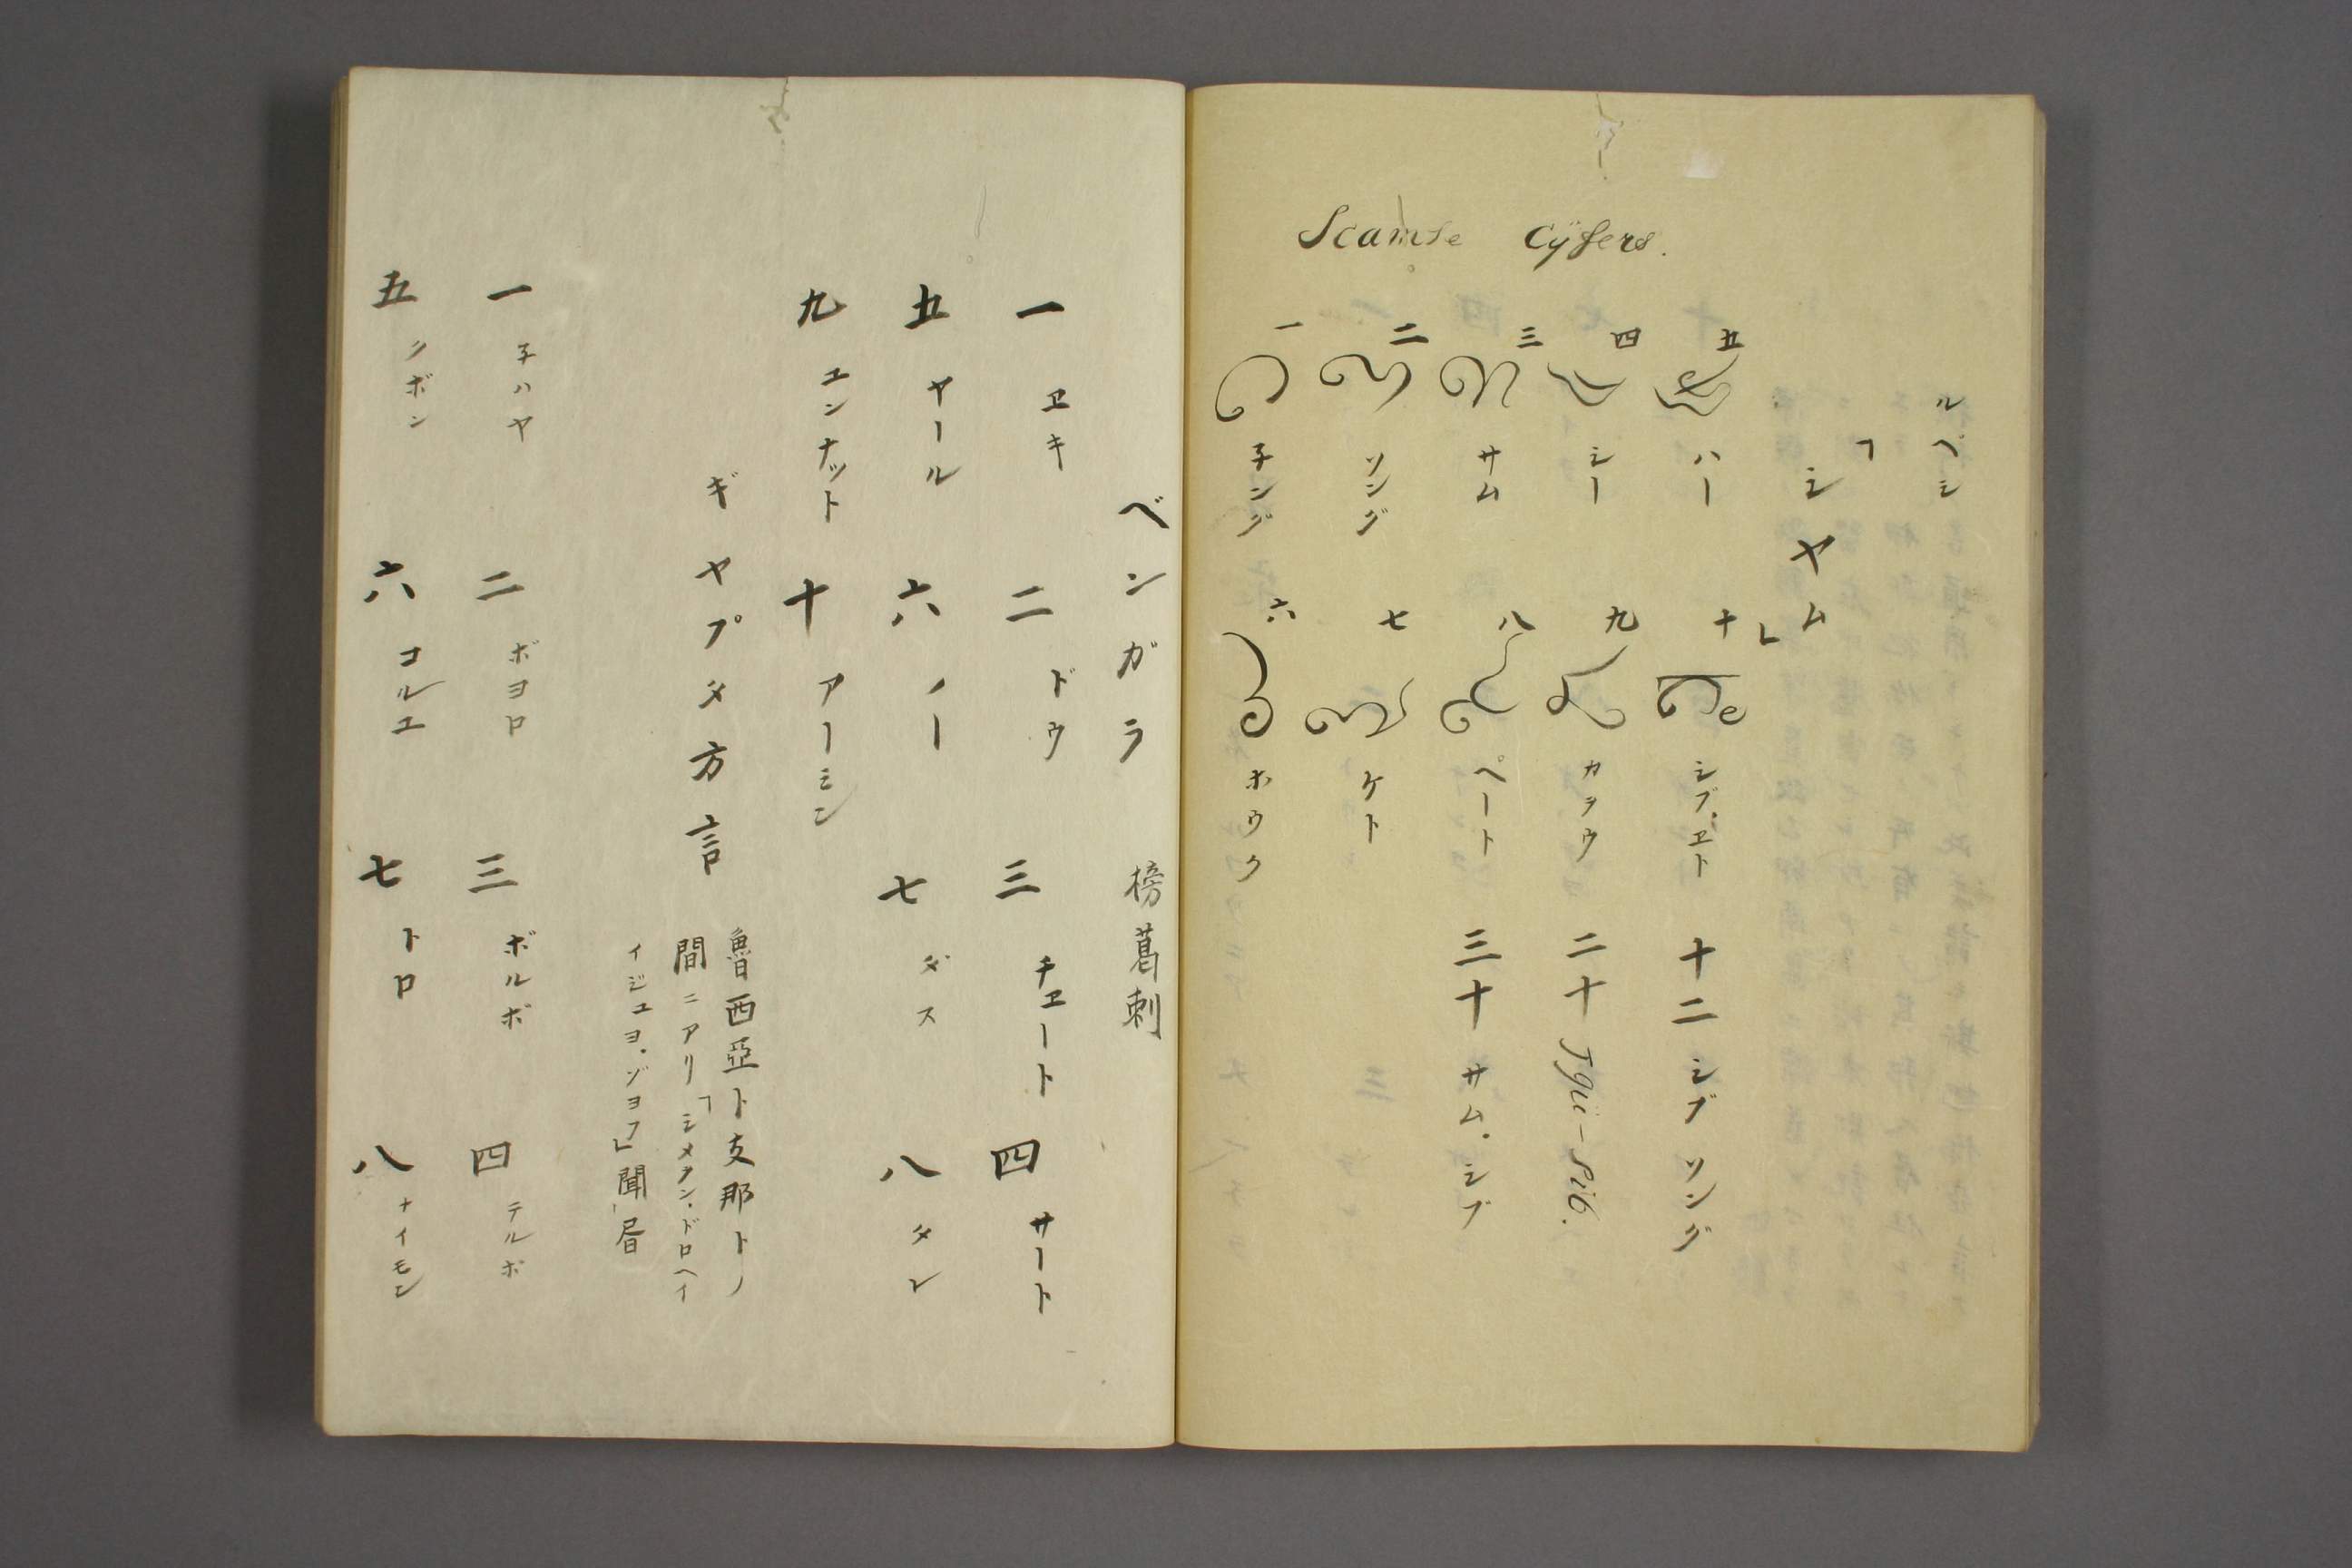 ルペシ
「シヤム」
Scamse Cijfers.
五 ハー
四 シー
三 サム
二 ソング
一 子ング
十 シブ.ヱト
九 カヲウ
八 ペート
七 ケト
六 ホウク
十二 シブ ソング
二十 Jgii-sib.
三十 サム.シブ
ベンガラ 榜葛剌
一 ヱキ 二 ドウ 三 チヱート 四 サート
五 ヤール 六 ノー 七 ダス 八 タレ
九 エンナット 十 アーミン
ギヤプタ方言 魯西亞ト支那トノ
間ニアリ「シメヲン.ドロヘイ
イジユヨ.ゾヨフ」聞昏
一 子ハヤ 二 ボヨロ 三 ボルボ 四 テルボ
五 クボン 六 コルエ 七 トロ 八 ナイモン